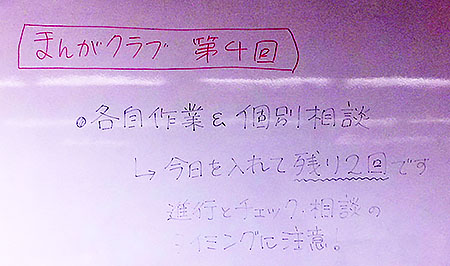 まんがクラブ 第4回
各自作業 & 個別相談
↳ 今日を入れて残り2回です
進行とチェック・相談の
タイミングに注意!